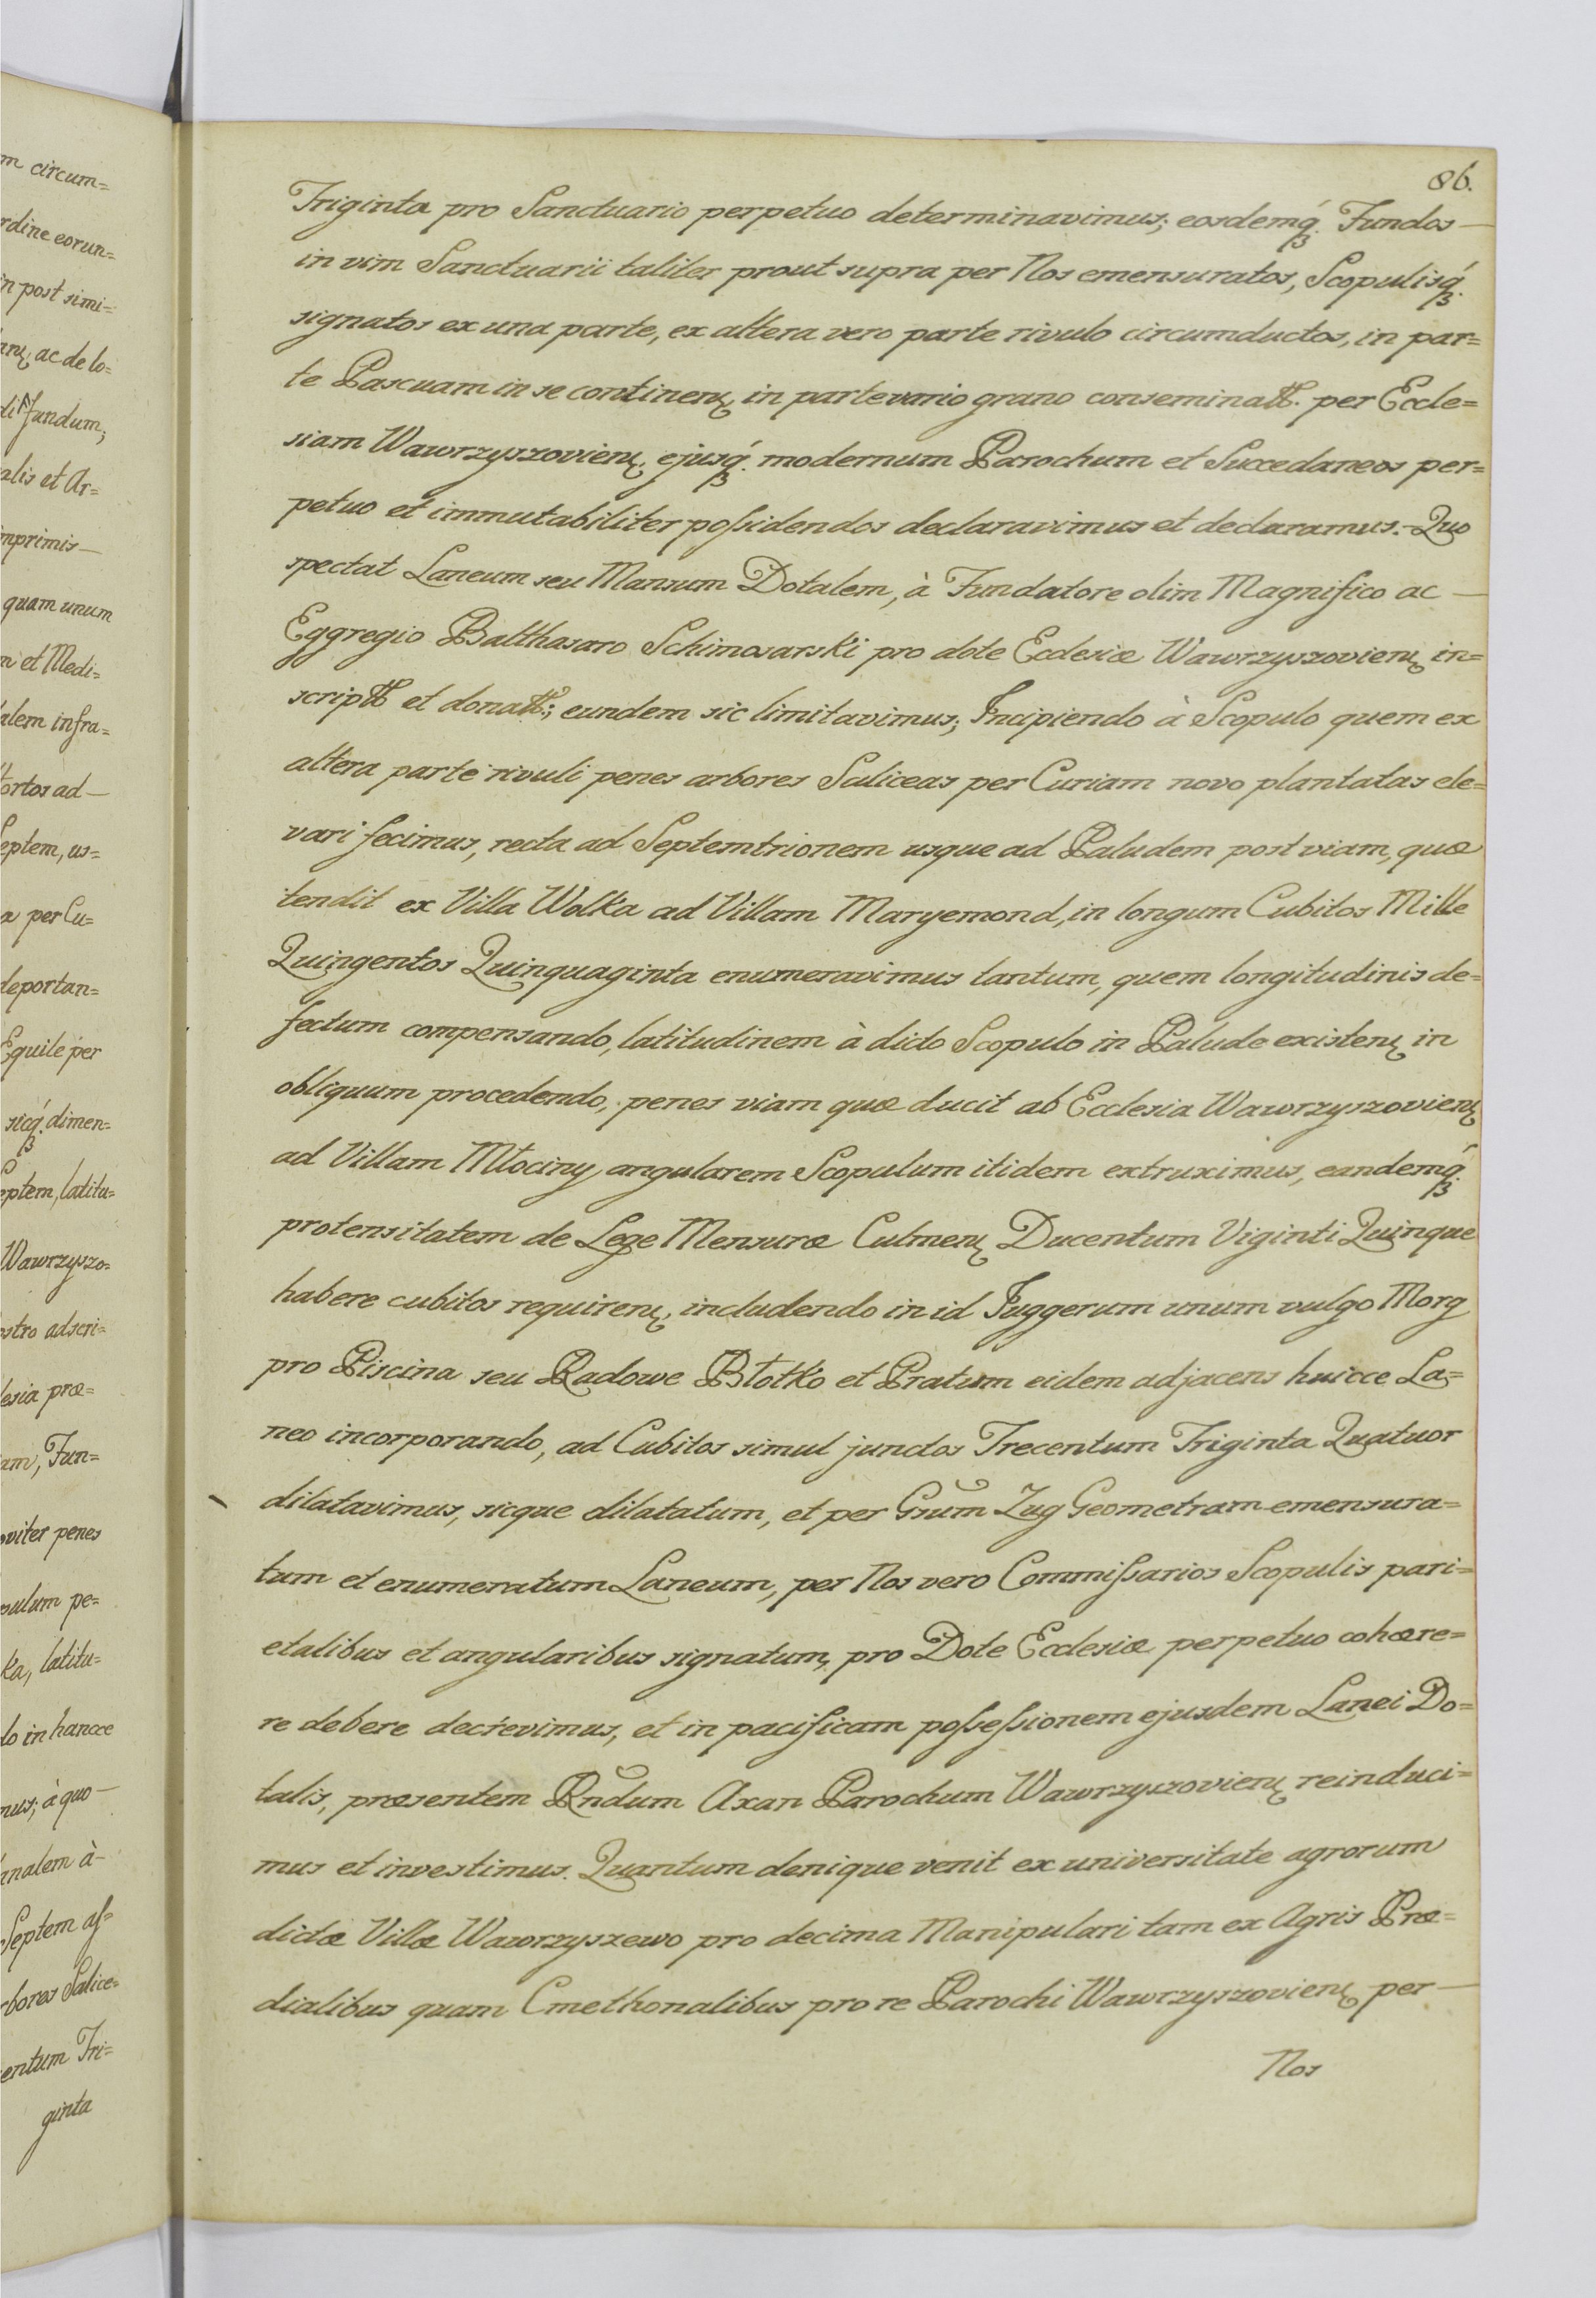 86.
Triginta pro Sanctuario perpetuo determinavimus; eosdemq́ꝫ. Fundos —
in vim Sanctuarii taliter prout supra per Nos emensuratos, Scopulisq́ꝫ.
signatos ex una parte, ex altera vero parte rivulo circumductos, in par=
te Pascuam in se continenꝫ, in parte vario grano conseminatt͞. per Eccle=
siam Wawrzyszovienꝫ. ejusq́ꝫ. modernum Parochum et Succedaneos per=
petuo et immutabiliter poſsidendos declaravimus et declaramus. - Quo
spectat Laneum seu Mansum Dotalem, à Fundatore olim Magnifico ac —
Eggregio Balthasaro Schimosarski pro dote Ecclesiæ Wawrzyszovienꝫ in=
scriptt͞ et donatt͞.; eundem sic limitavimus; Incipiendo à Scopulo quem ex
altera parte rivuli penes arbores Saliceas per Curiam novo plantatas ele=
vari fecimus, recta ad Septemtrionem usque ad Paludem post viam, quæ
tendit ex Villa Wolka ad Villam Maryemond, in longum Cubitos Mille
Quingentos Quinquaginta enumeravimus tantum, quem longitudinis de=
fectum compensando, latitudinem à dicto Scopulo in Palude existenꝫ in
obliquum procedendo, penes viam quæ ducit ab Ecclesia Wawrzyszovienꝫ
ad Villam Młociny angularem Scopulum itidem extruximus, eandemq́ꝫ.
protensitatem de Lege Mensuræ Culmenꝫ Ducentum Viginti Quinque
habere cubitos requirenꝫ, includendo in id Juggerum unum vulgo Morg
pro Piscina seu Radowe Błotko et Pratum eidem adjacens huicce La=
neo incorporando, ad Cubitos simul junctos Trecentum Triginta Quatuor
dilatavimus, sicque dilatatum, et per Gsum̃ Zug Geometram emensura=
tum et enumeratum Laneum, per Nos vero Commiſsarios Scopulis pari=
etalibus et angularibus signatum, pro Dote Ecclesiæ perpetuo cohære=
re debere decrevimus, et in pacificam poſseſsionem ejusdem Lanei Do=
talis, præsentem Rñdum Axan Parochum Wawrzyszovienꝫ reinduci=
mus et investimus. Quantum denique venit ex universitate agrorum
dictæ Villæ Wawrzyszewo pro decima Manipulari tam ex Agris Præ=
dialibus quam Cmethonalibus pro re Parochi Wawrzyszovienꝫ per —
Nos